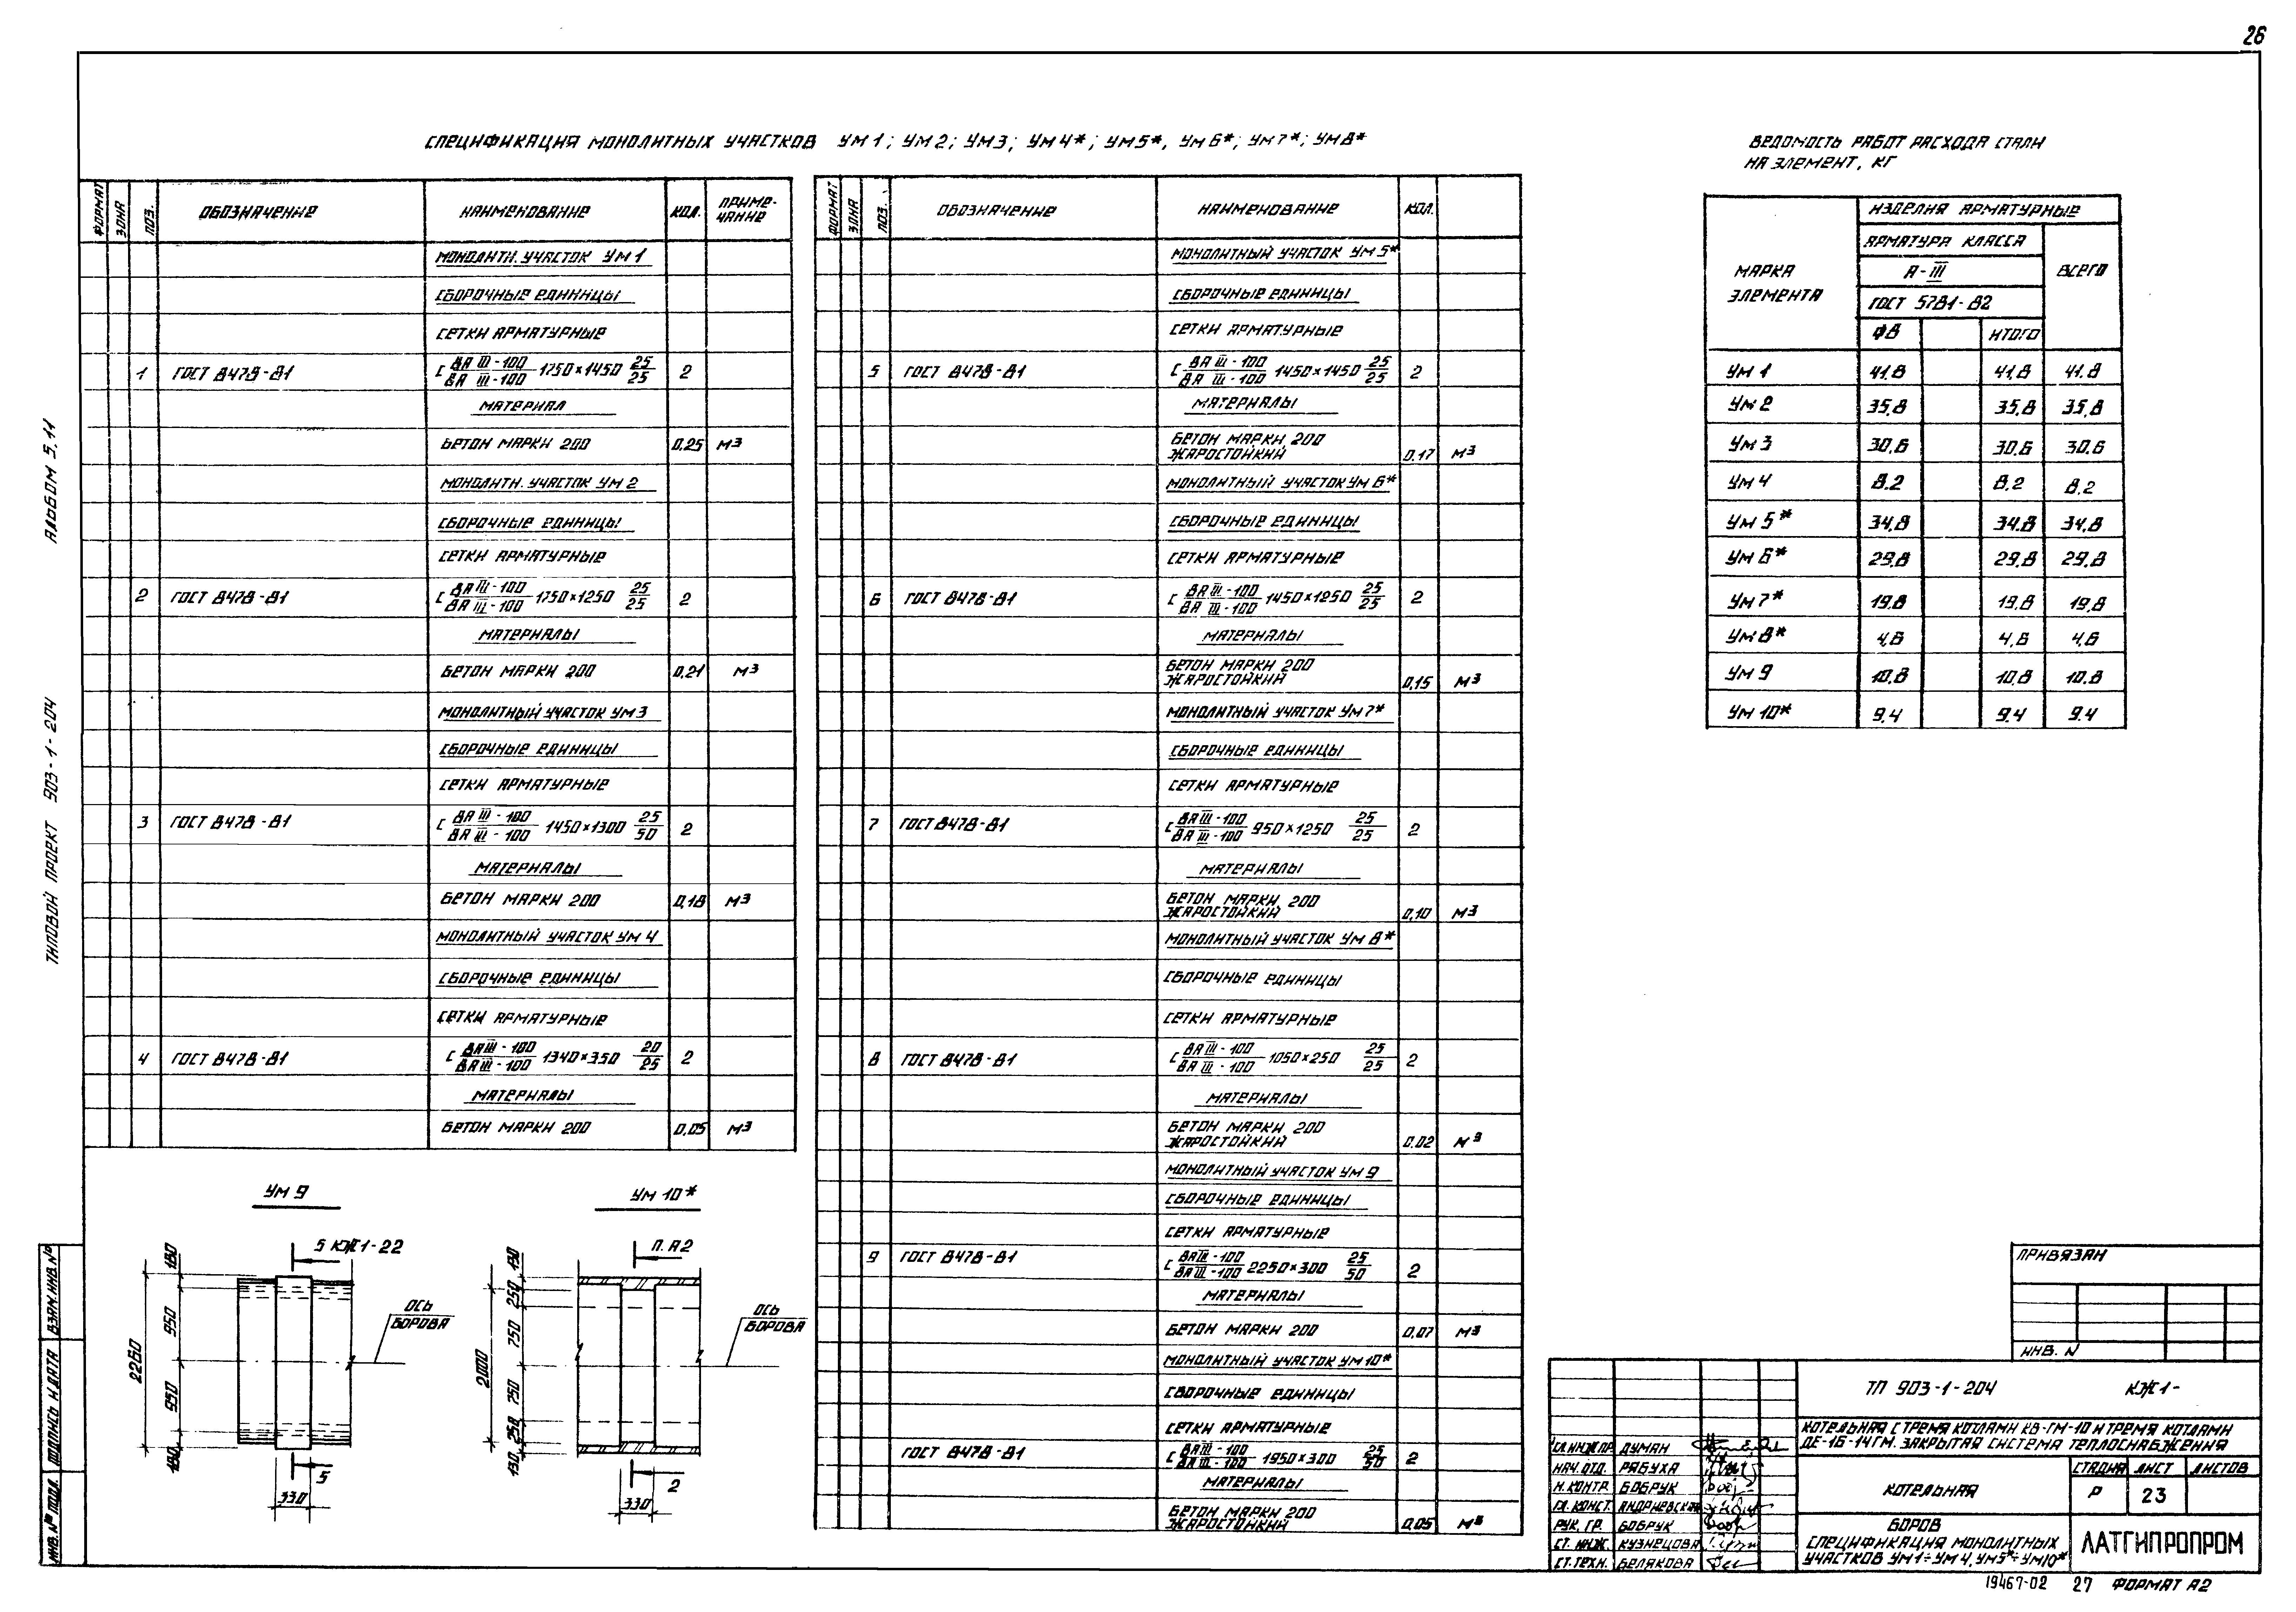 26
СПЕЦИФИКАЦИЯ МОНОЛИТНЫХ УЧАСТКОВ УМ1; УМ2; УМ3; УМ4*; УМ5*, УМ6*; УМ7*; УМ8*
ФОРМАТ ЗОНА ПОЗ. ОБОЗНАЧЕНИЕ НАИМЕНОВАНИЕ КОЛ. ПРИМЕ-
ЧАНИЕ
МОНОЛИТН. УЧАСТОК УМ1
СБОРОЧНЫЕ ЕДИНИЦЫ
СЕТКИ АРМАТУРНЫЕ
1 ГОСТ 8478-81 С 8А III-100/8А III-100 1750×1450 25/25 2
МАТЕРИАЛ
БЕТОН МАРКИ 200 0.25 М3
МОНОЛИТН. УЧАСТОК УМ2
СБОРОЧНЫЕ ЕДИНИЦЫ
СЕТКИ АРМАТУРНЫЕ
2 ГОСТ 8478-81 С 8А III-100/8А III-100 1750×1250 25/25 2
МАТЕРИАЛЫ
БЕТОН МАРКИ 200 0,21 М3
МОНОЛИТНЫЙ УЧАСТОК УМ3
СБОРОЧНЫЕ ЕДИНИЦЫ
СЕТКИ АРМАТУРНЫЕ
3 ГОСТ 8478-81 С 8А III-100/8А III-100 1450×1300 25/50 2
МАТЕРИАЛЫ
БЕТОН МАРКИ 200 0,18 М3
МОНОЛИТНЫЙ УЧАСТОК УМ4
СБОРОЧНЫЕ ЕДИНИЦЫ
СЕТКИ АРМАТУРНЫЕ
4 ГОСТ 8478-81 С 8А III-100/8А III-100 1340×350 20/25 2
МАТЕРИАЛЫ
БЕТОН МАРКИ 200 0,05 М3
ФОРМАТ ЗОНА ПОЗ. ОБОЗНАЧЕНИЕ НАИМЕНОВАНИЕ КОЛ.
МОНОЛИТНЫЙ УЧАСТОК УМ5*
СБОРОЧНЫЕ ЕДИНИЦЫ
СЕТКИ АРМАТУРНЫЕ
5 ГОСТ 8478-81 С 8А III-100/8А III-100 1450×1450 25/25 2
МАТЕРИАЛЫ
БЕТОН МАРКИ 200
ЖАРОСТОЙКИЙ 0.17 М3
МОНОЛИТНЫЙ УЧАСТОК УМ6*
СБОРОЧНЫЕ ЕДИНИЦЫ
СЕТКИ АРМАТУРНЫЕ
6 ГОСТ 8478-81 С 8А III-100/8А III-100 1450×1250 25/25 2
МАТЕРИАЛЫ
БЕТОН МАРКИ 200
ЖАРОСТОЙКИЙ 0,15 М3
МОНОЛИТНЫЙ УЧАСТОК УМ7*
СБОРОЧНЫЕ ЕДИНИЦЫ
СЕТКИ АРМАТУРНЫЕ
7 ГОСТ 8478-81 С 8А III-100/8А III-100 950×1250 25/25 2
МАТЕРИАЛЫ
БЕТОН МАРКИ 200
ЖАРОСТОЙКИЙ 0,10 М3
МОНОЛИТНЫЙ УЧАСТОК УМ8*
СБОРОЧНЫЕ ЕДИНИЦЫ
СЕТКИ АРМАТУРНЫЕ
8 ГОСТ 8478-81 С 8А III-100/8А III-100 1050×250 25/25 2
МАТЕРИАЛЫ
БЕТОН МАРКИ 200
ЖАРОСТОЙКИЙ 0.02 М3
МОНОЛИТНЫЙ УЧАСТОК УМ9
СБОРОЧНЫЕ ЕДИНИЦЫ
СЕТКИ АРМАТУРНЫЕ
9 ГОСТ 8478-81 С 8А III-100/8А III-100 2250×300 25/50 2
МАТЕРИАЛЫ
БЕТОН МАРКИ 200 0,07 М3
МОНОЛИТНЫЙ УЧАСТОК УМ10*
СБОРОЧНЫЕ ЕДИНИЦЫ
СЕТКИ АРМАТУРНЫЕ
ГОСТ 8478-81 С 8А III-100/8А III-100 1950×300 25/50 2
МАТЕРИАЛЫ
БЕТОН МАРКИ 200
ЖАРОСТОЙКИЙ 0,05 М3
ВЕДОМОСТЬ РАБОТ РАСХОДА СТАЛИ
НА ЭЛЕМЕНТ, КГ
МАРКА
ЭЛЕМЕНТА
ИЗДЕЛИЯ АРМАТУРНЫЕ
АРМАТУРА КЛАССА
ВСЕГО
А-III
ГОСТ 5781-82
Ф8 ИТОГО
УМ1 41.8 41,8 41.8
УМ2 35,8 35,8 35,8
УМ3 30,6 30,6 30.6
УМ4 8.2 8.2 8.2
УМ5* 34,8 34.8 34,8
УМ6* 29,8 29,8 29,8
УМ7* 19.8 19,8 19,8
УМ8* 4,6 4,6 4,6
УМ9 10.8 10.8 10.8
УМ10* 9.4 9.4 9.4
АЛЬБОМ 5.11
ТИПОВОЙ ПРОЕКТ 903-1-204
ВЗАМ. ИНВ. №
ПОДПИСЬ И ДАТА
ИНВ. № ПОДЛ.
УМ9
5 КЖ1-22
180
950
2260
950
180
ОСЬ
БОРОВА
5
330
УМ10*
П. А2
130
250
750
2000
750
250
130
ОСЬ
БОРОВА
2
330
ПРИВЯЗАН
ИНВ. №
ТП 903-1-204 КЖ1-
КОТЕЛЬНАЯ С ТРЕМЯ КОТЛАМИ КВ-ГМ-10 И ТРЕМЯ КОТЛАМИ
ДЕ-16-14ГМ. ЗАКРЫТАЯ СИСТЕМА ТЕПЛОСНАБЖЕНИЯ
ГЛ. ИНЖ. ПР. ДУМАН
НАЧ. ОТД. РЯБУХА
Н. КОНТР. БОБРУК
ГЛ. КОНСТ. АНДРИЕВСКАЯ
РУК. ГР. БОБРУК
СТ. ИНЖ. КУЗНЕЦОВА
СТ. ТЕХН. БЕЛЯКОВА
КОТЕЛЬНАЯ
СТАДИЯ ЛИСТ ЛИСТОВ
Р 23
БОРОВ
СПЕЦИФИКАЦИЯ МОНОЛИТНЫХ
УЧАСТКОВ УМ1÷УМ4, УМ5*÷УМ10*
ЛАТГИПРОПРОМ
19467-02 27 ФОРМАТ А2